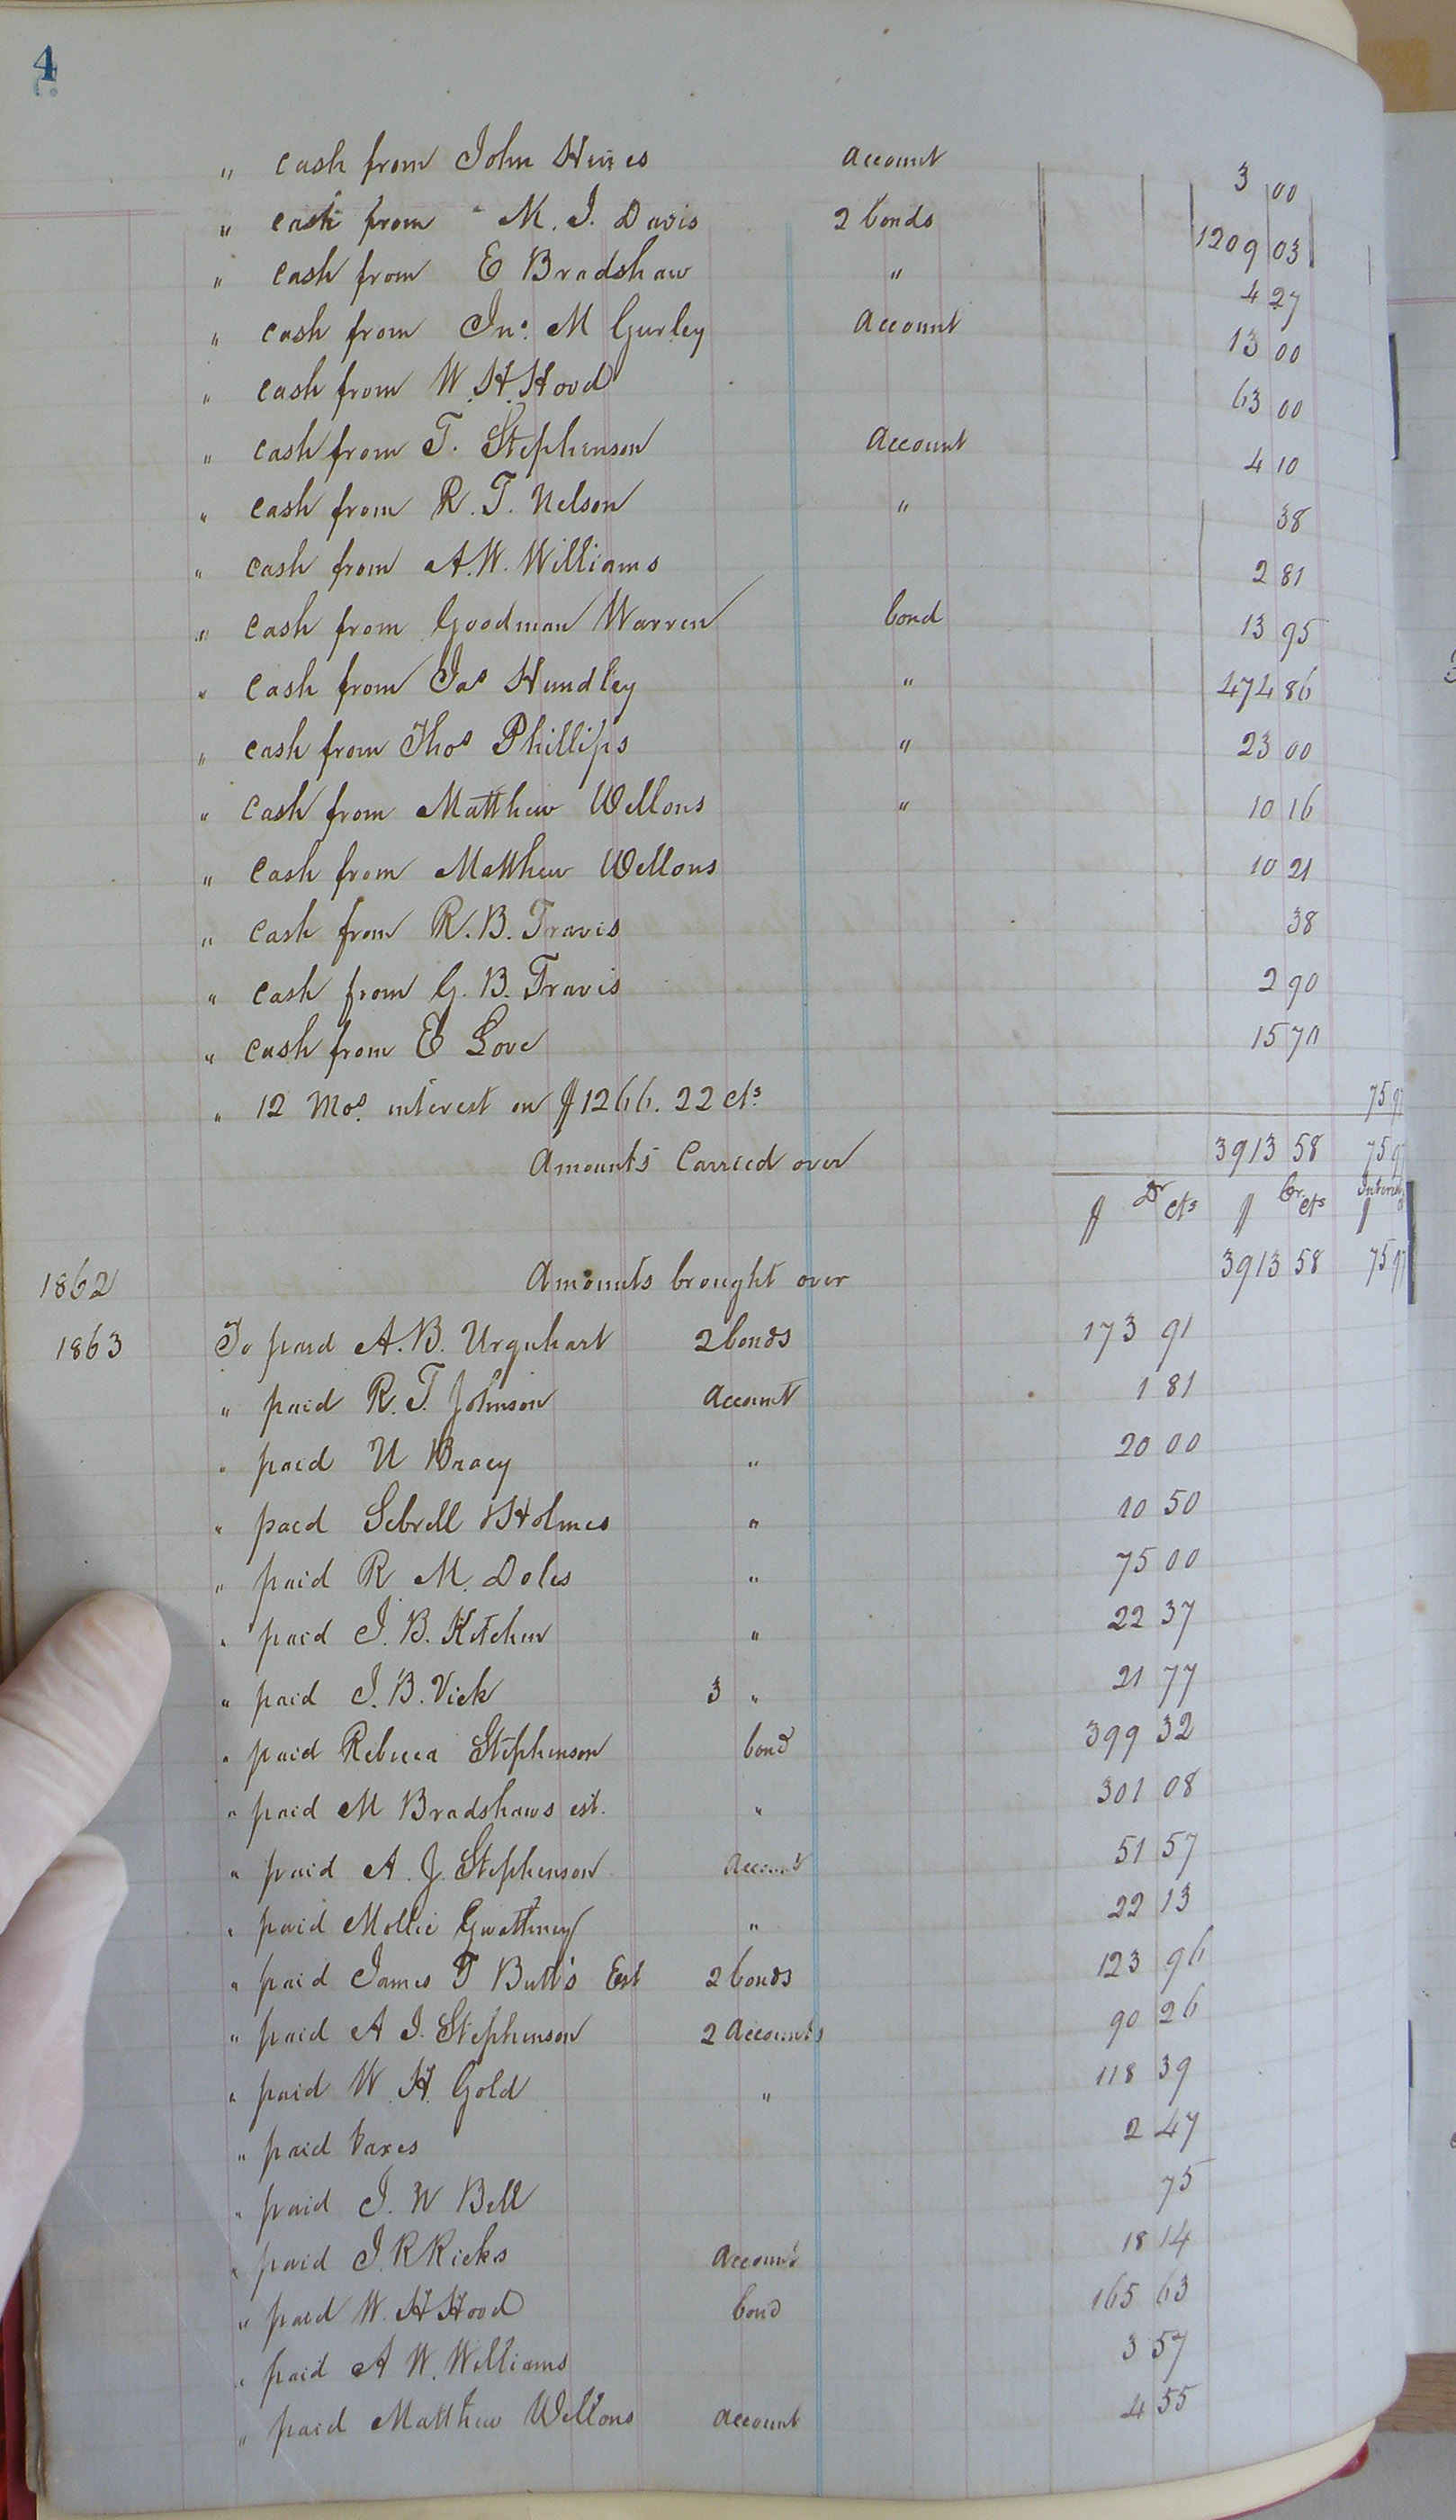 4
" cash from John Hines account 3 00
" cash from M. J. Davis 2 bonds 1209 03
" cash from E Bradshaw " 4 27
" cash from Jno. M Gurley Account 13 00
" cash from W. H. Hood 63 00
" cash from T. Stephenson Account 4 10
" cash from R. T. Nelson " 38
" cash from A. W. Williams 2 81
" cash from Goodman Warren bond 13 95
" cash from Jas Hundley " 474 86
" cash from Thos Phillips " 23 00
" cash from Matthew Wellons " 10 16
" cash from Matthew Wellons 10 21
" cash from R. B. Travis 38
" cash from G. B. Travis 2 90
" cash from E Love 15 70
" 12 Mos. interest on $1266. 22 cts 75 97
Amounts Carried over 3913 58 75 97
$ Dr cts $ Cr cts Interest
1862 Amounts brought over 3913 58 75 97
1863 To paid A. B. Urquhart 2 bonds 173 91
" paid R. T. Johnson Account 1 81
" paid U Bracy " 20 00
" paid Sebrell & Holmes " 10 50
" paid R M. Doles " 75 00
" paid J. B. Kitchen " 22 37
" paid J. B. Vick 3 " 21 77
" paid Rebecca Stephenson bond 399 32
" paid M Bradshaws est. " 301 08
" paid A. J. Stephenson Account 51 57
" paid Mollie Gwathney " 22 13
" paid James T Butts Est 2 bonds 123 96
" paid A J. Stephenson 2 Accounts 90 26
" paid W. H. Gold " 118 39
" paid taxes 2 47
" paid J. W Bell 75
" paid J. R Ricks Account 18 14
" paid W. H Hood bond 165 63
" paid A W. Williams 3 57
" paid Matthew Wellons account 4 55